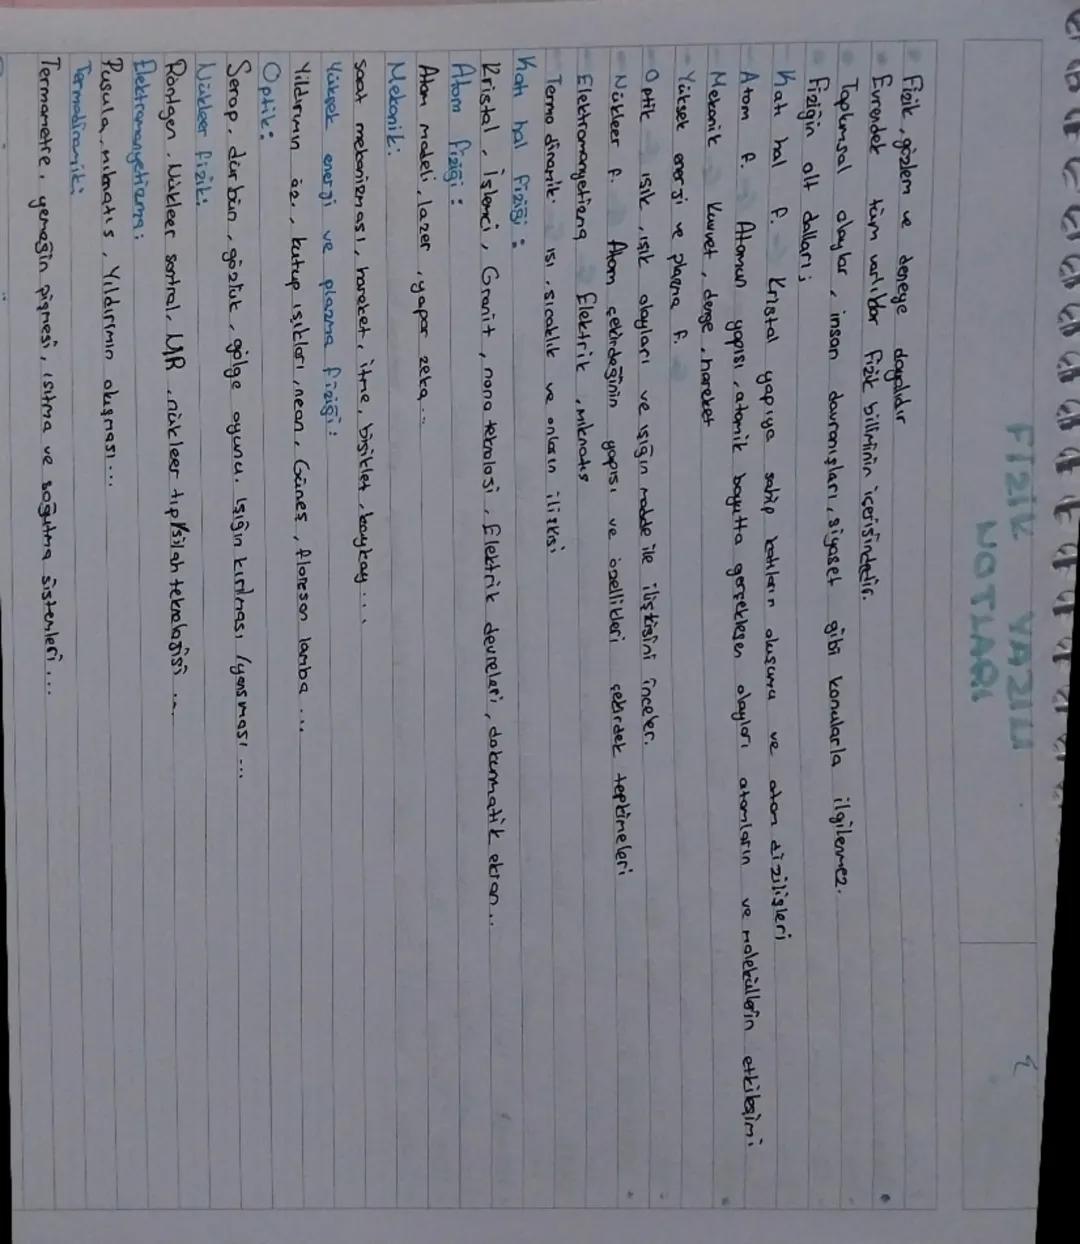 FİZİK YAZILI
NOTLARI
Fizik, gözlem ve deneye dayalıdır
Evrendek tüm varlıklar fizik biliminin içerisindedir.
Toplumsal olaylar, insan davranışları, siyaset gibi konularla ilgilenmez.
Fiziğin alt dalları;
Katı hal f. → Kristal yapıya sahip katıların oluşumu ve atom dizilişleri
Atom f. → Atomun yapısı, atomik boyutta gerçekleşen olayları atomların ve moleküllerin etkileşimi
Mekanik → Kuvvet, denge, hareket
Yüksek enerji ve plazma f. →
Optik → ışık, ışık olayları ve ışığın madde ile ilişkisini inceler.
Nükleer f. → Atom çekirdeğinin yapısı ve özellikleri çekirdek tepkimeleri
Elektromanyetizma → Elektrik, mıknatıs
Termo dinamik → ısı, sıcaklık ve onların ilişkisi
Katı hal fiziği:
Kristal, İşlemci, Granit, nano teknolosi, Elektrik devreleri, dokunmatik ekran...
Atom fiziği:
Atom modeli, lazer, yapar zeka...
Mekanik:
saat mekanizması, hareket, itme, bisiklet, kaykay...
Yüksek energi ve plazma fiziği:
Yıldırımın öz, kutup ışıkları, neon, Güneş, floresan lamba...
Optik:
Serap, dürbün, gözlük, gölge oyunu. Işığın kırılması/yansıması...
Nükleer fizik:
Röntgen, Nükleer santral, MR, nükleer tıp/silah teknolojisi...
Elektromanyetizma:
Pusula, mıknatıs, Yıldırımın oluşması...
Termodinamik:
Termometre, yemeğin pişmesi, ısıtma ve soğutma sistemleri...